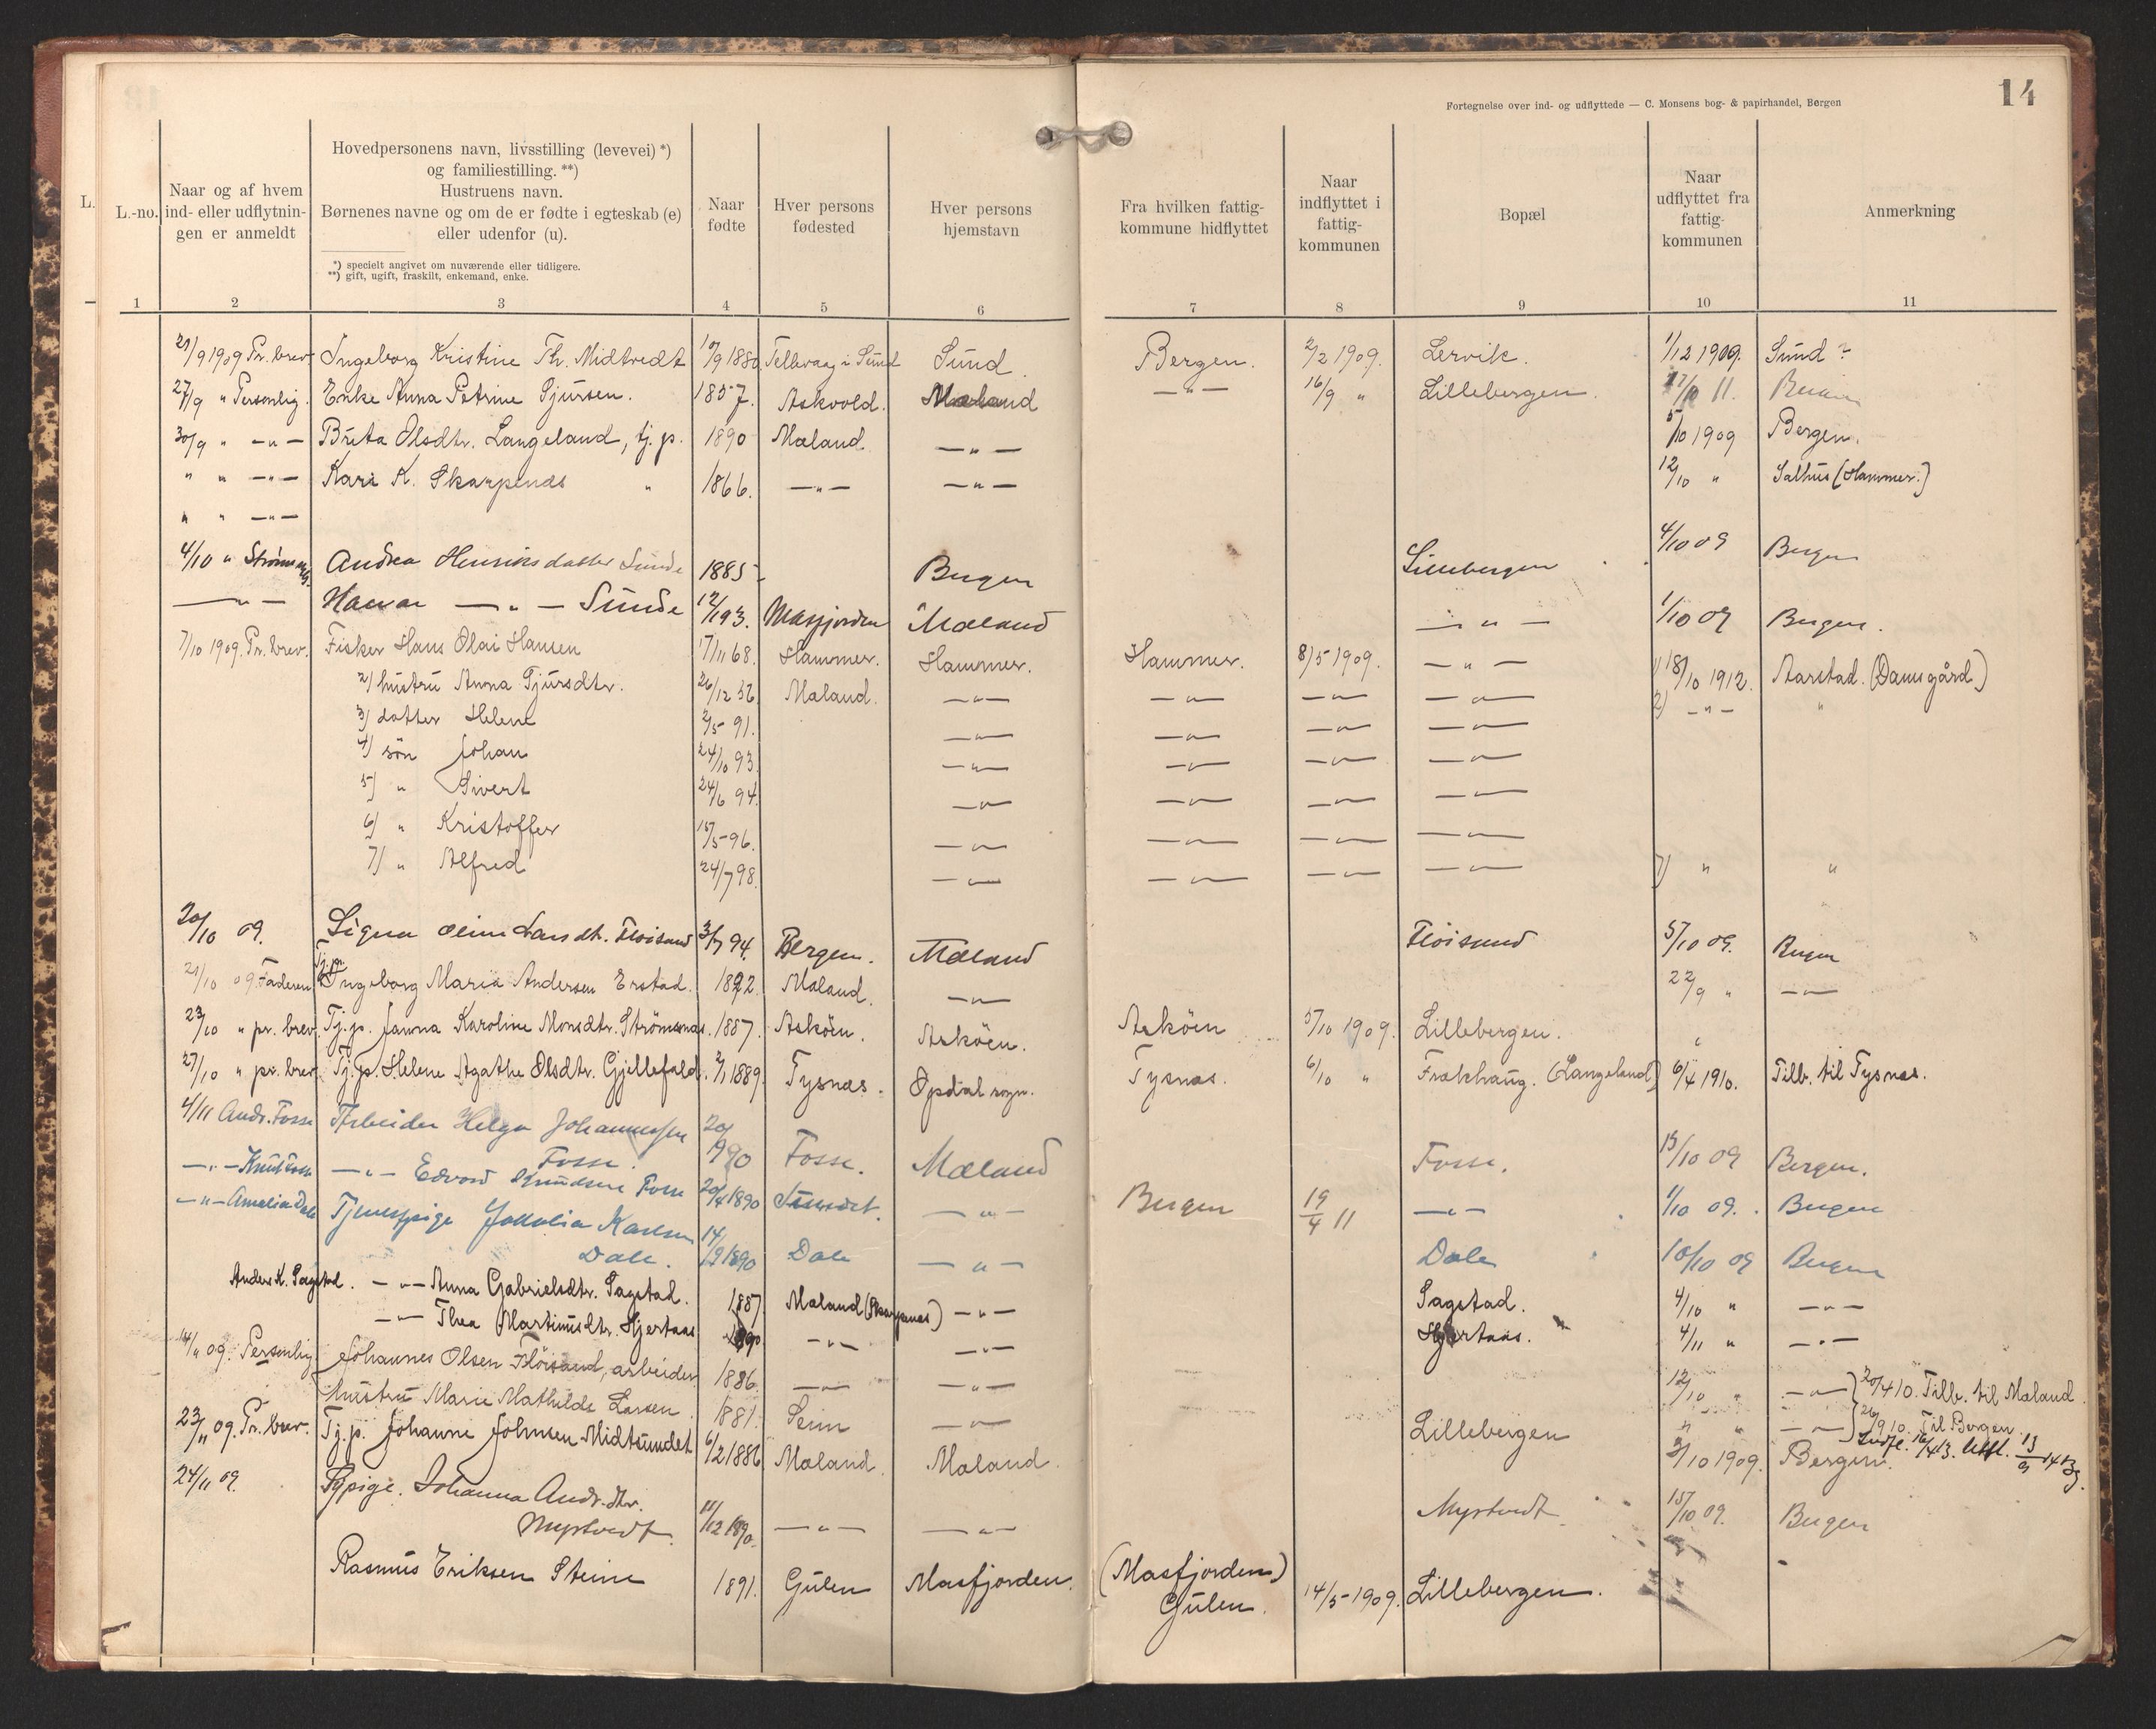 14
Fortegnelse over ind- og udflyttede — C. Monsens bog- & papirhandel, Bergen
L.
L.-no.
Naar og af hvem ind- eller udflytnin- gen er anmeldt
Hovedpersonens navn, livsstilling (levevei) *)
og familiestilling. **)
Hustruens navn.
Børnenes navne og om de er fødte i egteskab (e)
eller udenfor (u).
*) specielt angivet om nuværende eller tidligere.
**) gift, ugift, fraskilt, enkemand, enke.
Naar fødte
Hver persons fødested
Hver persons hjemstavn
Fra hvilken fattig- kommune hidflyttet
Naar indflyttet i fattig- kommunen
Bopæl
Naar udflyttet fra fattig- kommunen
Anmerkning
1 2 3 4 5 6 7 8 9 10 11
21/9 1909 Pr. brev Ingeborg Kristine Th. Midtvedt 10/9 1889 Tellevaag i Sund Sund. Bergen. 2/2 1909. Lervik. 1/12 1909. Sund ?
27/9 " Personlig. Enke Anna Petrine Gjursen. 1857. Askvold. Mæland —"— 16/9 " Lillebergen. 11.
30/9 " —"— Brita Olsdtr. Langeland, tj. p. 1890 Mæland. —"— 5/10 1909 Bergen.
" " —"— Kari K. Skarpenæs " 1866. —"— —"— 12/10 " Salhus (Hammer.)
" " —"—
4/10 " Andrea Henriksdatter Sunde 1885 Bergen Lillebergen 4/10 09 Bergen
—"— —"— Sunde 12/1 93. Masfjorden Mæland —"— 1/10 09 Bergen.
7/10 1909. Pr. brev. Fisker Hans Olai Hansen 17/11 68. Hammer. Hammer. Hammer. 8/5 1909. —"— 1) 18/10 1912. Aarstad. (Damsgård)
2) hustru Anna Gjursdtr. 26/12 56 Mæland. —"— —"— —"— —"— 2) —"— "
3) datter Helene 2/5 91. —"— —"— —"— —"—
4) sön Johan 24/10 93. —"— —"— —"— —"—
5) " Sivert 24/6 94. —"— —"— —"— —"—
6) " Kristoffer 15/5 96. —"— —"— —"— —"—
7) " Alfred 24/7 98. —"— —"— —"— —"— 7) " "
20/10 09. Signa Oline Larsdtr. Flöisand 3/7 94. Bergen. Mæland Flöisand 5/10 09. Bergen
21/10 09. Faderen Tj.p. Ingeborg Maria Andersen Erstad. 1892. Mæland. —"— 22/9 " —"—
23/10 " pr. brev. Tj.p. Janna Karoline Monsdtr. Strömsnæs. 1887. Asköen. Asköen. Asköen 5/10 1909. Lillebergen. "
27/10 " pr. brev Tj.p. Helene Agathe Olsdtr. Gjellefald. 2/1 1889. Tysnæs. Opdal sogn. Tysnæs. 6/10 " (Langeland) 6/4 1910. Tilb. til Tysnæs.
4/11 Andr. Fosse Arbeider Helge Johannessen
Fosse. 20/9 90 Fosse. Mæland Fosse. 15/10 09 Bergen.
—"— Knut Fosse —"— Edvard Knudsen Fosse 20/4 1890 —"— Bergen 19/4 11 —"— 1/10 09. Bergen
—"— Amalia Dale Tjenestpige Karlsen
Dale. 14/9 1890 Dale —"— Dale 10/10 09 Bergen
Anders K. Sagstad. —"— Anna Gabrielsdtr. Sagstad. 1887 Mæland (Skarpenæs) —"— Sagstad. 4/10 " —"—
—"— Thea Martinusdtr. Hjertaas 1890 —"— —"— Hjertaas. 4/11 " —"—
14/11 09. Personlig Johannes Olsen Flöisand, arbeider 1886. —"— —"— 12/10 " —"— } 20/4 10. Tilb. til Mæland.
hustru Marie Mathilde Larsen. 1881. Seim —"— " " —"— } 26/9 10. Til Bergen.
23/11 09. Pr. brev. Tj.p. Johanne Johnsen Midtsundet 6/2 1886. Mæland. Mæland. Lillebergen 2/10 1909. Bergen. Indfl. 16/4 13. Utfl. 13/9
24/11 09. Tjpige. Johanna Andr.dtr.
Mystvedt. 11/12 1890. —"— —"— Mystvedt 15/10 09. Bergen
Rasmus Eriksen Steine 1891. Gulen Masfjorden. (Masfjorden) Gulen. 14/5 1909. Lillebergen.